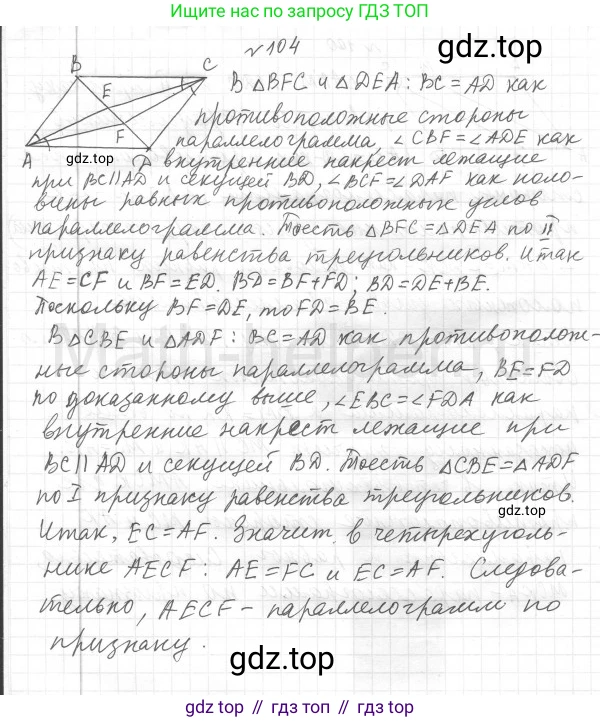 Ищите нас по запросу ГДЗ ТОП
№104
gdz.top
B
C
E
F
A
D
gdz.top
В △BFC и △DEA: BC = AD как
противоположные стороны
параллелограмма, ∠CBF = ∠ADE как
внутренние накрест лежащие
при BC || AD и секущей BD, ∠BCF = ∠DAF как поло-
вины равных противоположных углов
параллелограмма. Тоесть △BFC = △DEA по II
признаку равенства треугольников. Итак
AE = CF и BF = ED. BD = BF + FD; BD = DE + BE.
Поскольку BF = DE, то FD = BE.
В △CBE и △ADF: BC = AD как противополож-
ные стороны параллелограмма, BE = FD
по доказанному выше, ∠EBC = ∠FDA как
внутренние накрест лежащие при
BC || AD и секущей BD. Тоесть △CBE = △ADF
по I признаку равенства треугольников.
Итак, EC = AF. Значит в четырехуголь-
нике AECF: AE = FC и EC = AF. Следова-
тельно, AECF - параллелограмм по
признаку.
gdz.top
gdz.top // гдз.топ // gdz.top // гдз.топ